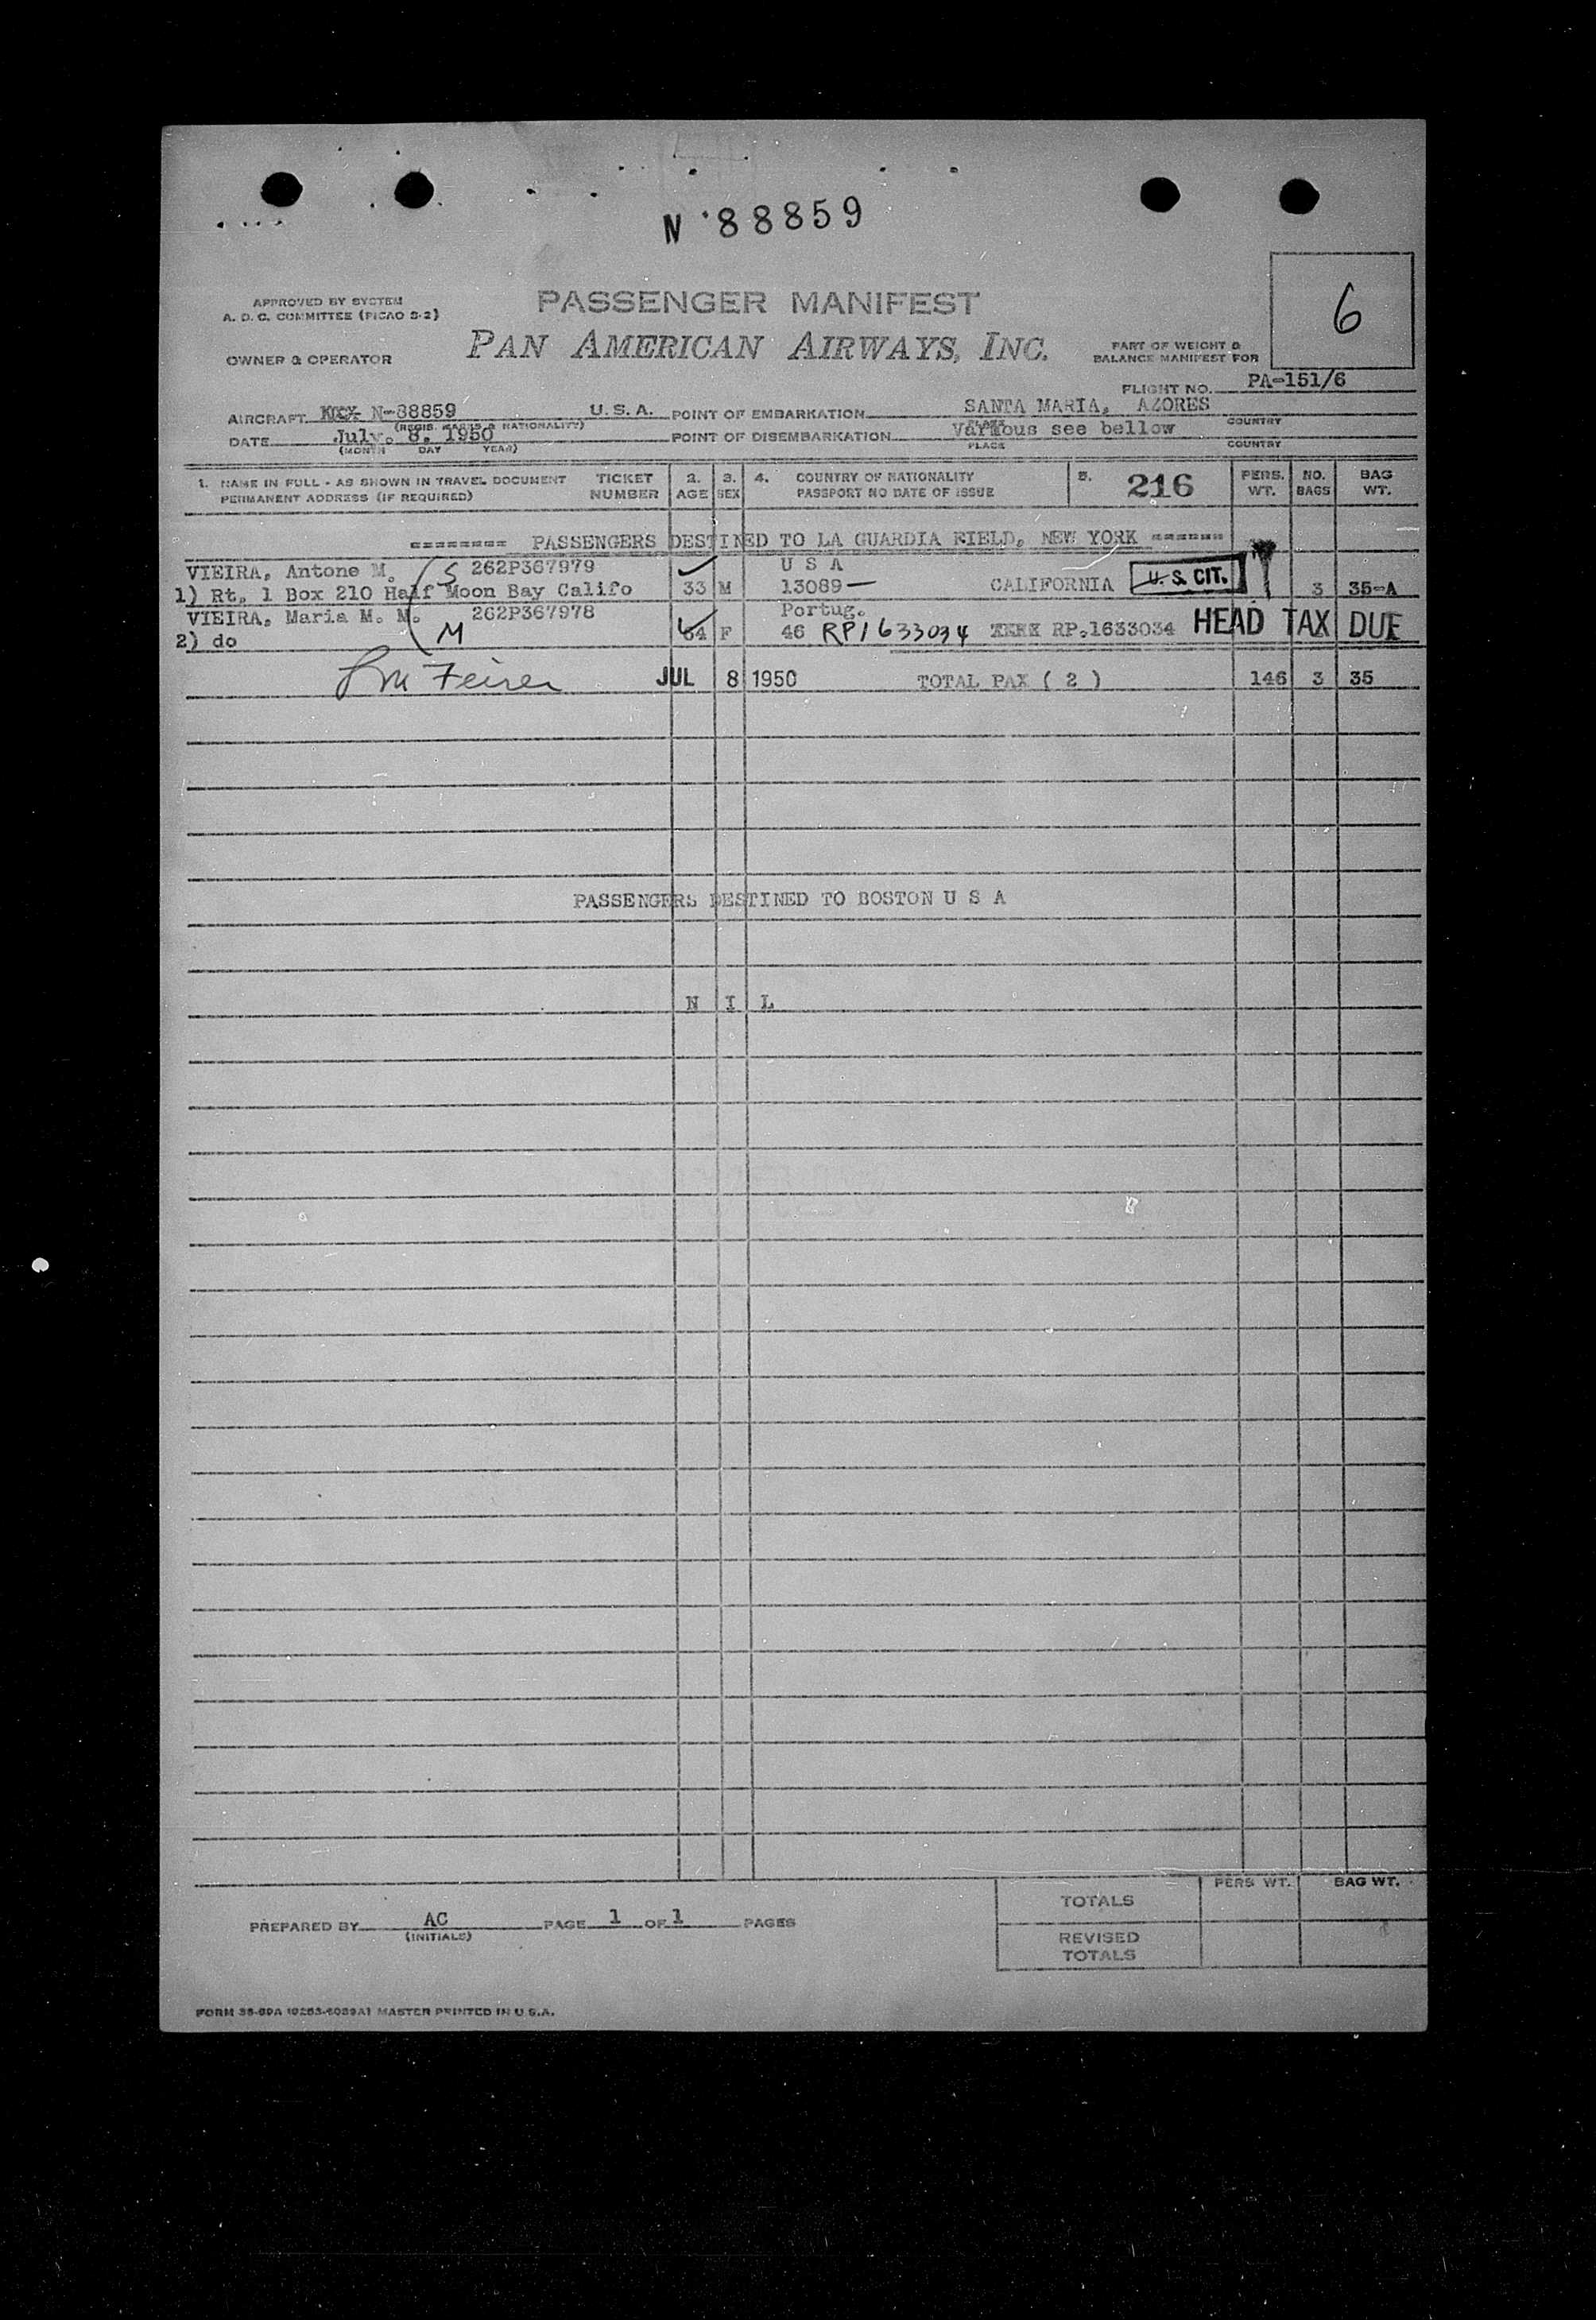 N 88859
6
APPROVED BY SYSTEM
A. D. C. COMMITTEE (PICAO S-2)
PASSENGER MANIFEST
PAN AMERICAN AIRWAYS, INC.
OWNER & OPERATOR
PART OF WEIGHT &
BALANCE MANIFEST FOR
FLIGHT NO. PA-151/6
AIRCRAFT N-88859 U. S. A. POINT OF EMBARKATION SANTA MARIA, AZORES
(REGIS. MARKS & NATIONALITY) PLACE COUNTRY
DATE July. 8. 1950 POINT OF DISEMBARKATION Various see bellow
(MONTH DAY YEAR) PLACE COUNTRY
1. NAME IN FULL - AS SHOWN IN TRAVEL DOCUMENT TICKET 2. 3. 4. COUNTRY OF NATIONALITY 5. 216 PERS. NO. BAG
PERMANENT ADDRESS (IF REQUIRED) NUMBER AGE SEX PASSPORT NO DATE OF ISSUE WT. BAGS WT.
======== PASSENGERS DESTINED TO LA GUARDIA FIELD, NEW YORK ======
VIEIRA, Antone M. S 262P367979 U S A
1) Rt. 1 Box 210 Half Moon Bay Califo 33 M 13089 — CALIFORNIA U. S. CIT. 3 35-A
VIEIRA, Maria M. M. 262P367978 Portug.
2) do M 64 F 46 RP1633034 RP.1633034 HEAD TAX DUE
JUL 8 1950 TOTAL PAX ( 2 ) 146 3 35
PASSENGERS DESTINED TO BOSTON U S A
N I L
PERS WT. BAG WT.
TOTALS
PREPARED BY AC PAGE 1 OF 1 PAGES
(INITIALS)
REVISED
TOTALS
MASTER PRINTED IN U.S.A.